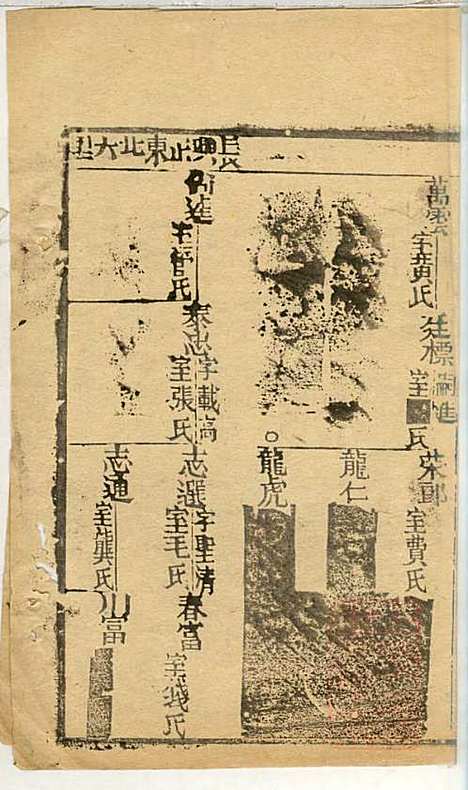 長興止東北大里
萬雲
室黃氏
廷標
室 氏
榮郎
室費氏
龍仁
龍虎
室管氏
泰忠 字載高
室張氏
志選 字聖清
室毛氏
春富
室錢氏
志通
室龔氏
富